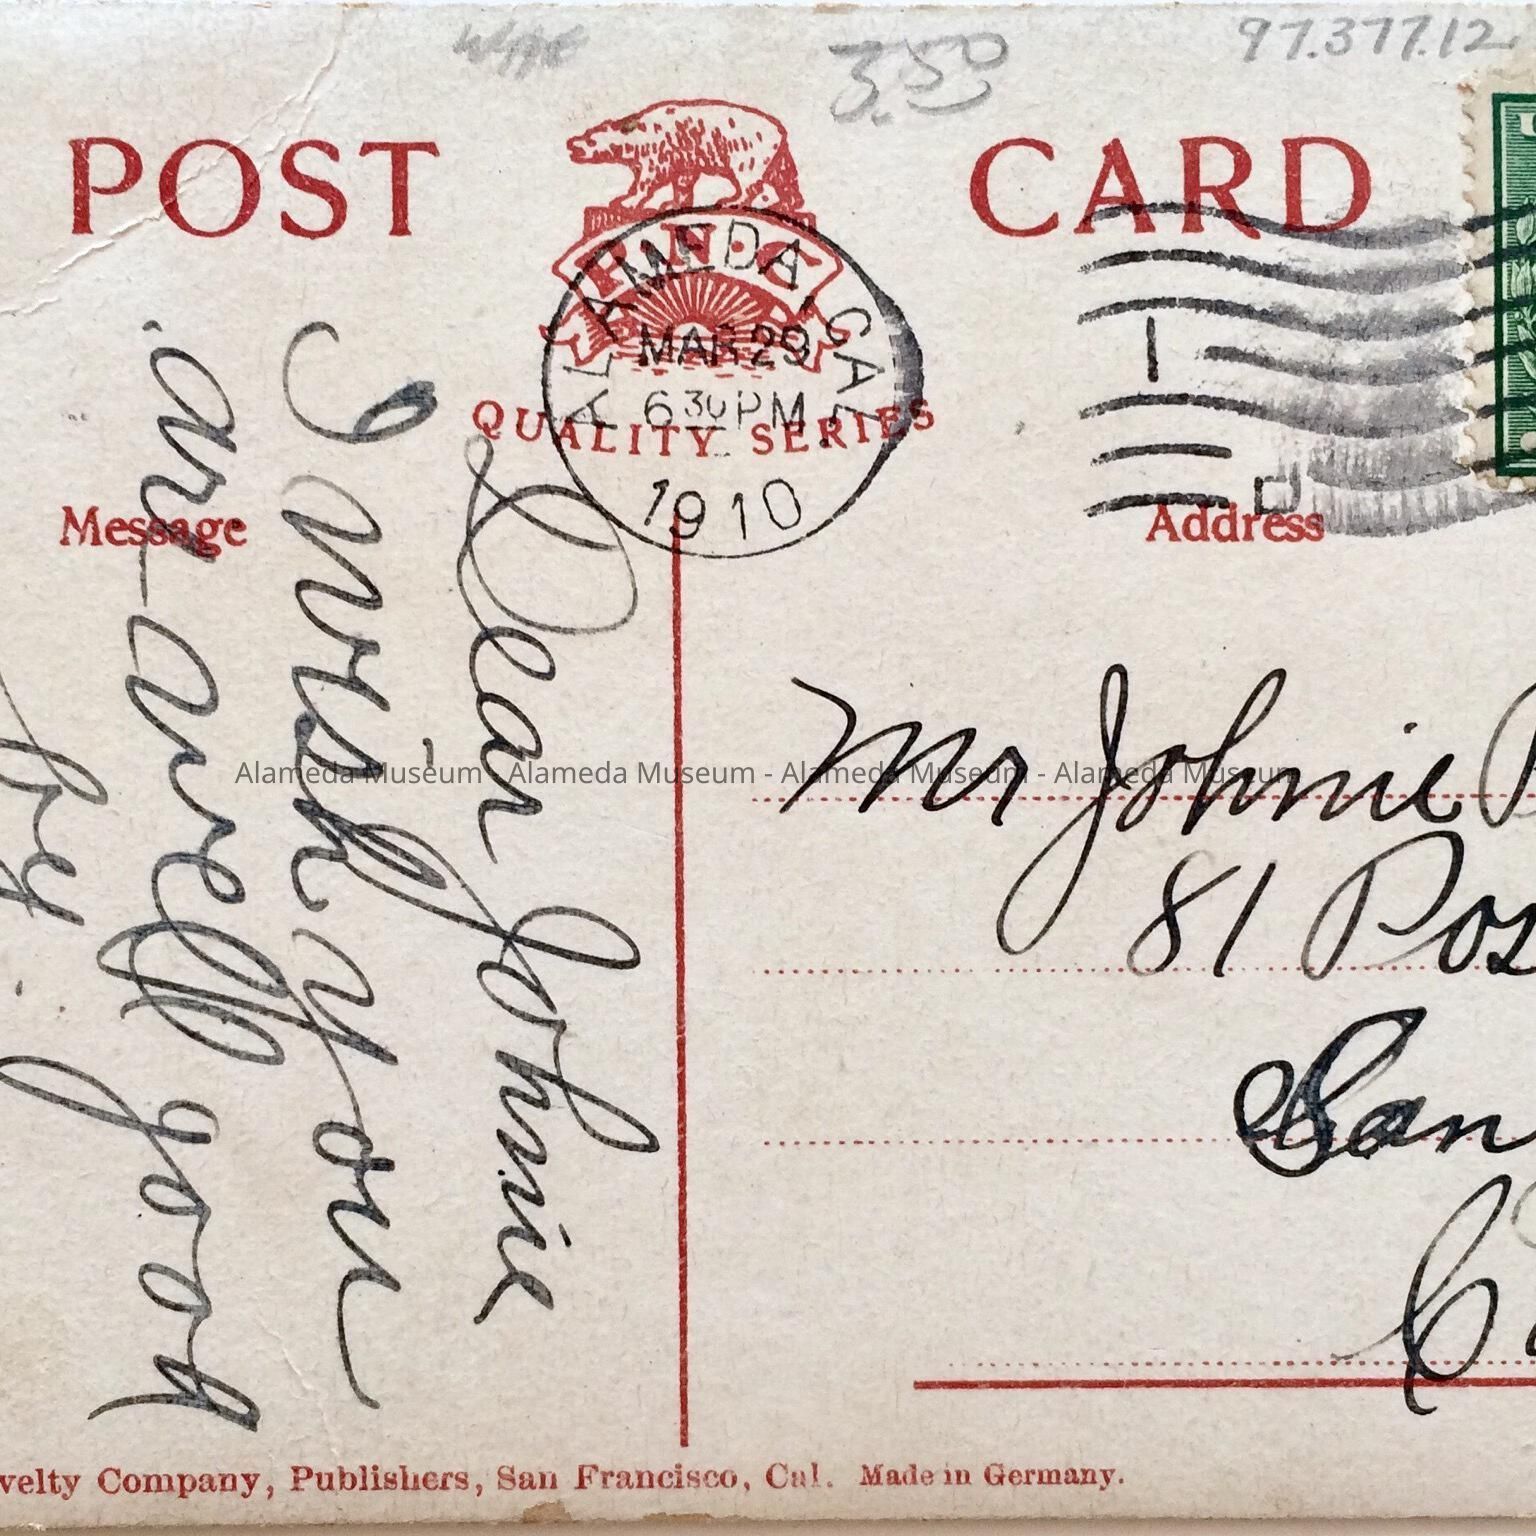 97.377.12
3.50
POST CARD
P.N.C.
QUALITY SERIES
ALAMEDA, CAL.
MAR 29
6 30 PM
1910
1
D
Message
Address
Dear Johnie
I wish you
an well good
by.
Mr Johnie
81 Pos
San
Alameda Museum - Alameda Museum - Alameda Museum - Alameda Museum
velty Company, Publishers, San Francisco, Cal. Made in Germany.